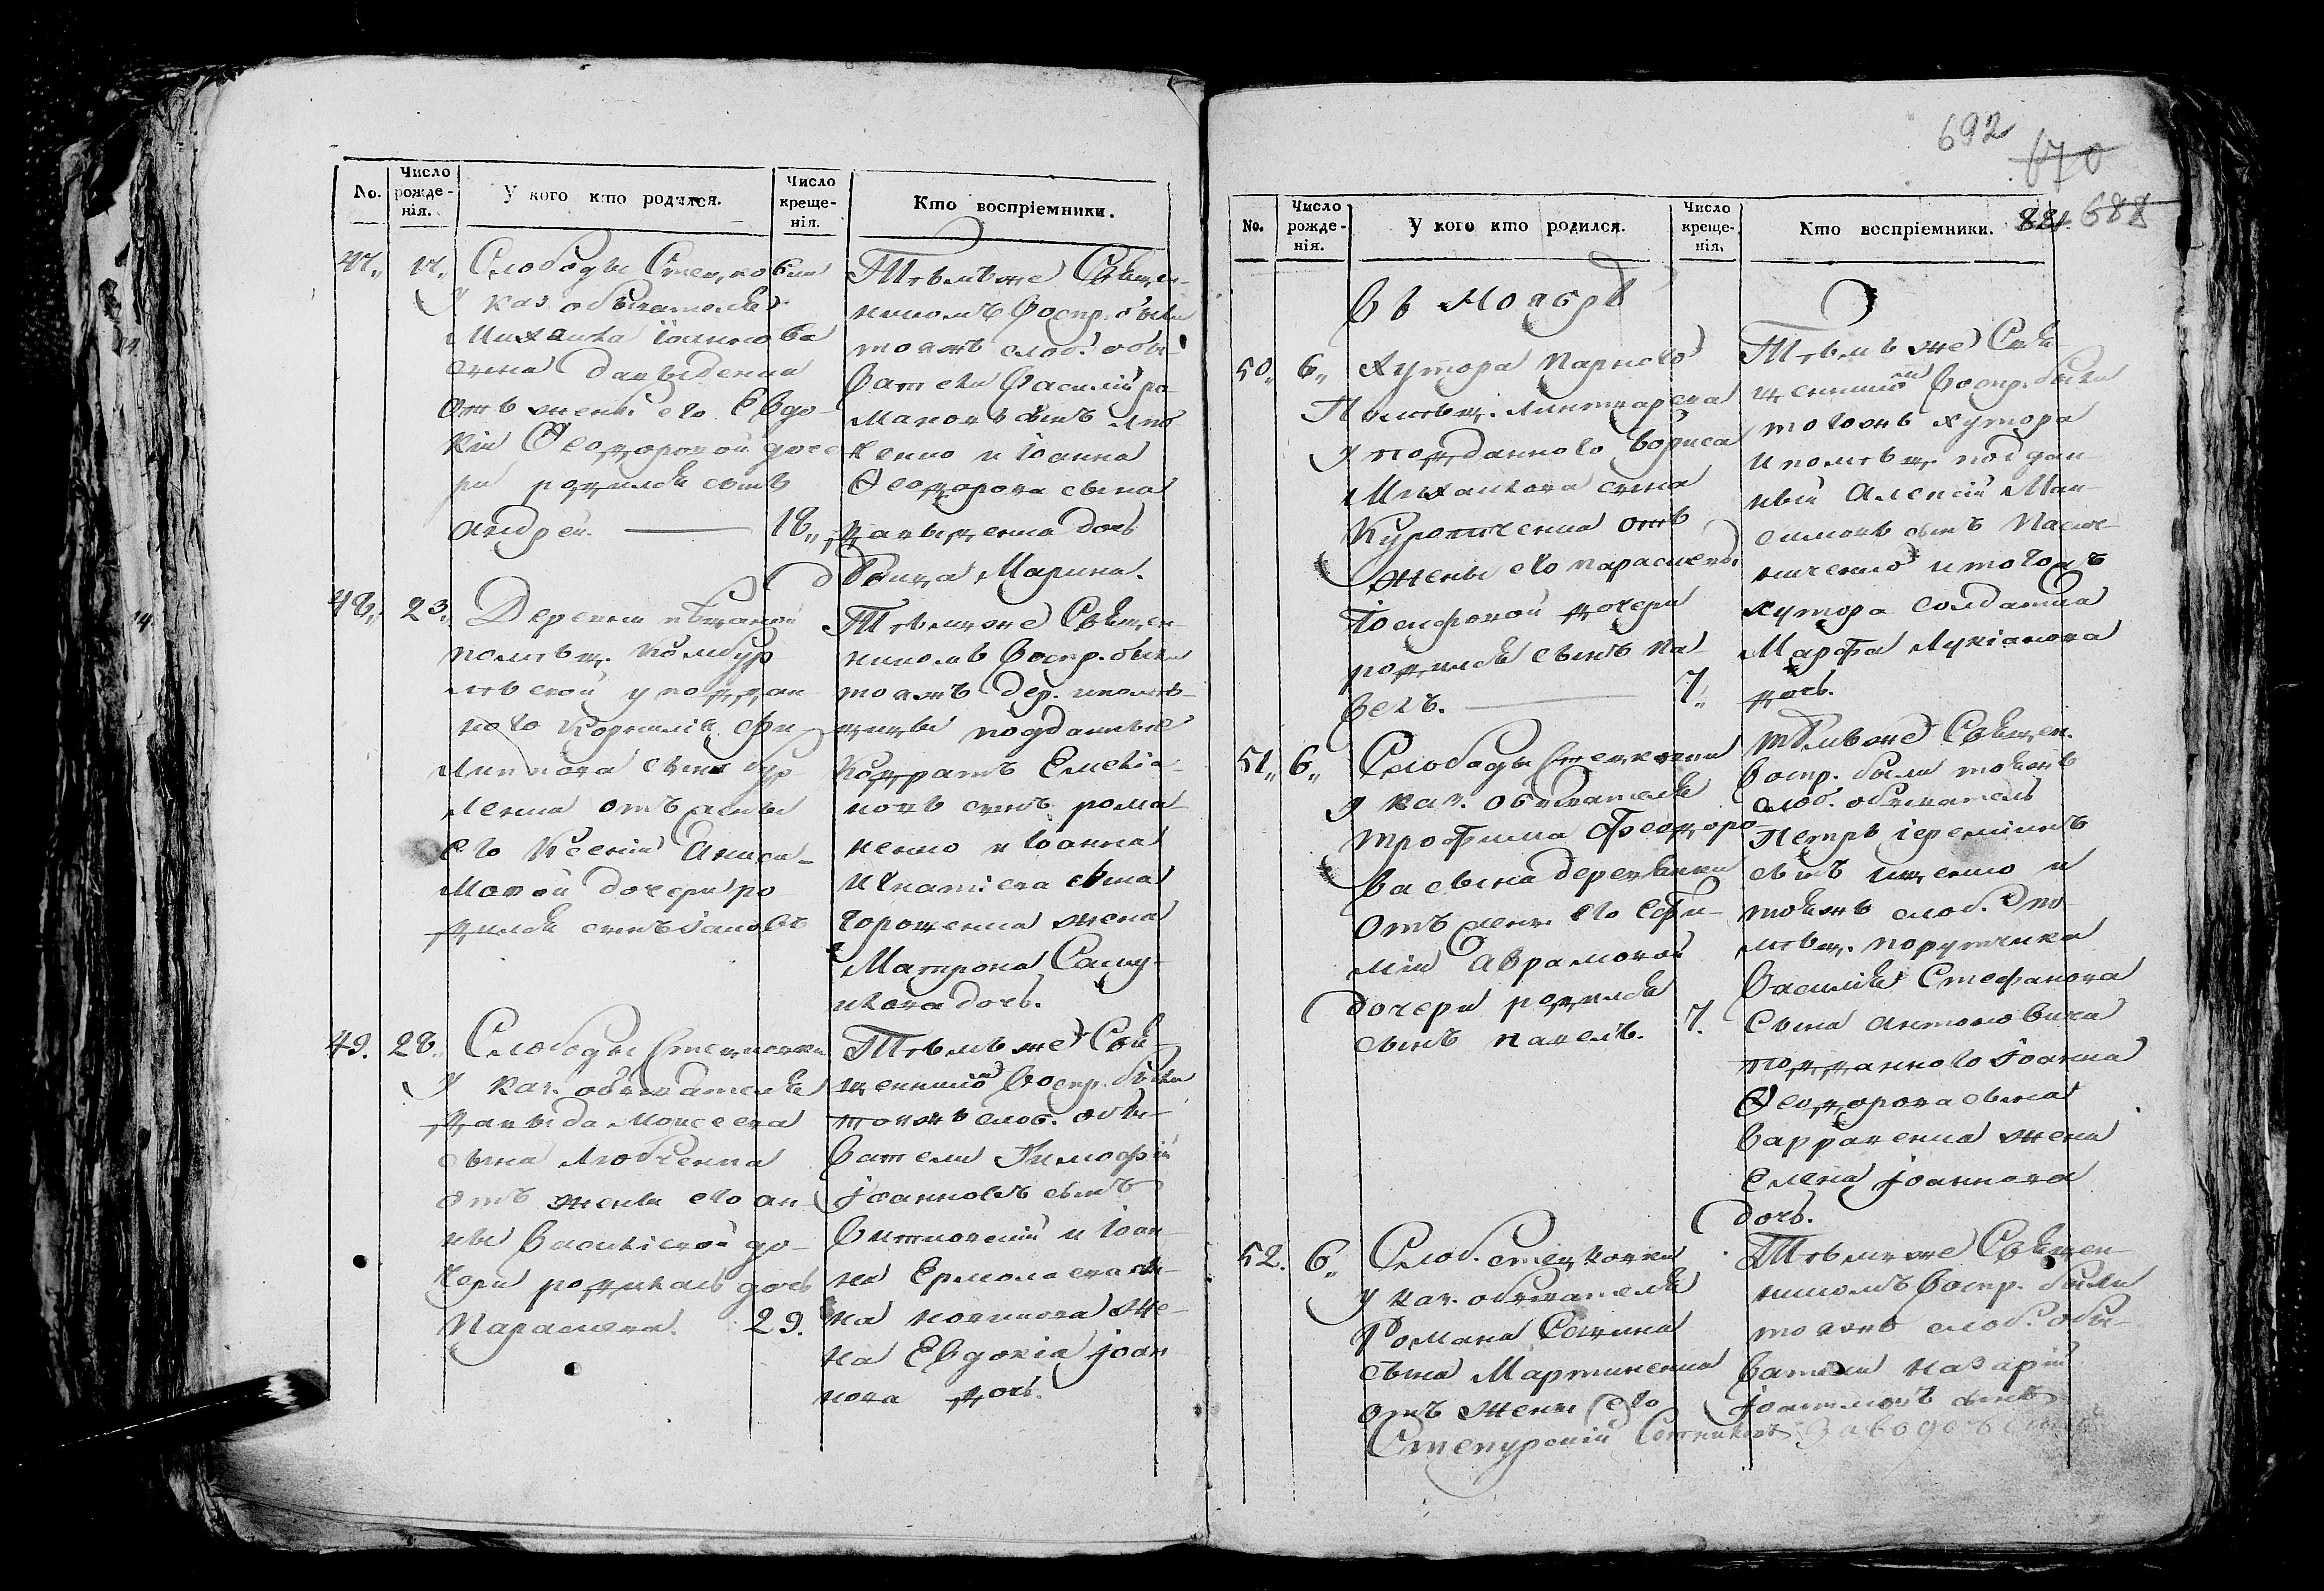 No.
Число рожденія.
У кого кто родился.
Число крещенія.
Кто воспріемники.
47,, 17,, Слободы Стецковки
у каз. обывателя
Михаила Іоаннова
сына Давыденка
отъ жены его Евдо-
кіи Ѳеодоровой доче
ри родился сынъ
Андрей. — 18,,
Тѣмъ же Священ-
никомъ Воспр. были
тоя жъ слоб. обы-
ватели Василій Ро
мановъ сынъ
кенко и Іоанна
Ѳеодорова сына
Давыденка дочь
Марина.
48,, 23,, Деревни
помѣщ.
у поддан
ного Корнилія Фи
липпова сына
ленка отъ жены
его Ксеніи Аниси-
мовой дочери ро
дился сынъ Іаковъ
Тѣмъ же Священ
никомъ Воспр. были
тоя жъ дер. и помѣ-
щицы подданные
Кодратъ Емелія-
новъ сынъ Рома
ненко и Іоанна
Игнатіева сына
Горощенка жена
Матрона Саму-
илова дочь.
49. 28. Слободы Стецковки
у каз. обывателя
Давыда Моисеева
сына Любченка
отъ жены его Ан-
ны Василіевой до-
чери родилась дочь
Параскева. 29.
Тѣмъ же Свя-
щенникомъ Воспр. были
тояжъ слоб. обы-
ватели Тимофій
Іоанновъ сынъ
и Іоан-
на Ермолаева сы-
на Новикова же-
на Евдокія Іоан
нова дочь.
692
670
881. 688
No.
Число рожденія.
У кого кто родился.
Число крещенія.
Кто воспріемники.
Въ Ноябрѣ
50,, 6,, Хутора Парного
Помѣщ. Линтварева
у подданного Бориса
Михаилова сына
отъ
жены его Параскевы
Іосифовой дочери
родился сынъ Па-
велъ. — 7,,
Тѣмъ же Свя
щенникомъ Воспр. были
тогожъ хутора
и помѣщ. поддан-
ный Алексій Мак-
симовъ сынъ
и тогожъ
хутора солдатка
Марфа Лукіанова
дочь.
51,, 6,, Слободы Стецковки
у каз. обывателя
Трофима Феодоро
ва сына Деревянки
отъ жены его Ефи-
міи Аврамовой
дочери родился
сынъ Павелъ. 7.
Тѣмъ же Священ.
Воспр. были тояжъ
слоб. обыватель
Петръ Іереміинъ
сынъ Ищенко и
тояжъ слоб. по-
мѣщ. порутчика
Василія Стефанова
сына Антоновича
подданного Іоанна
Ѳеодорова сына
Варравенка жена
Елена Іоаннова
дочь.
52. 6,, Слоб. Стецковки
у каз. обывателя
Романа Саввина
сына Мартиненка
отъ жены его
Тѣмъ же Священ-
никомъ Воспр. были
тояжъ слоб. обы-
ватели Назарій
сынъ